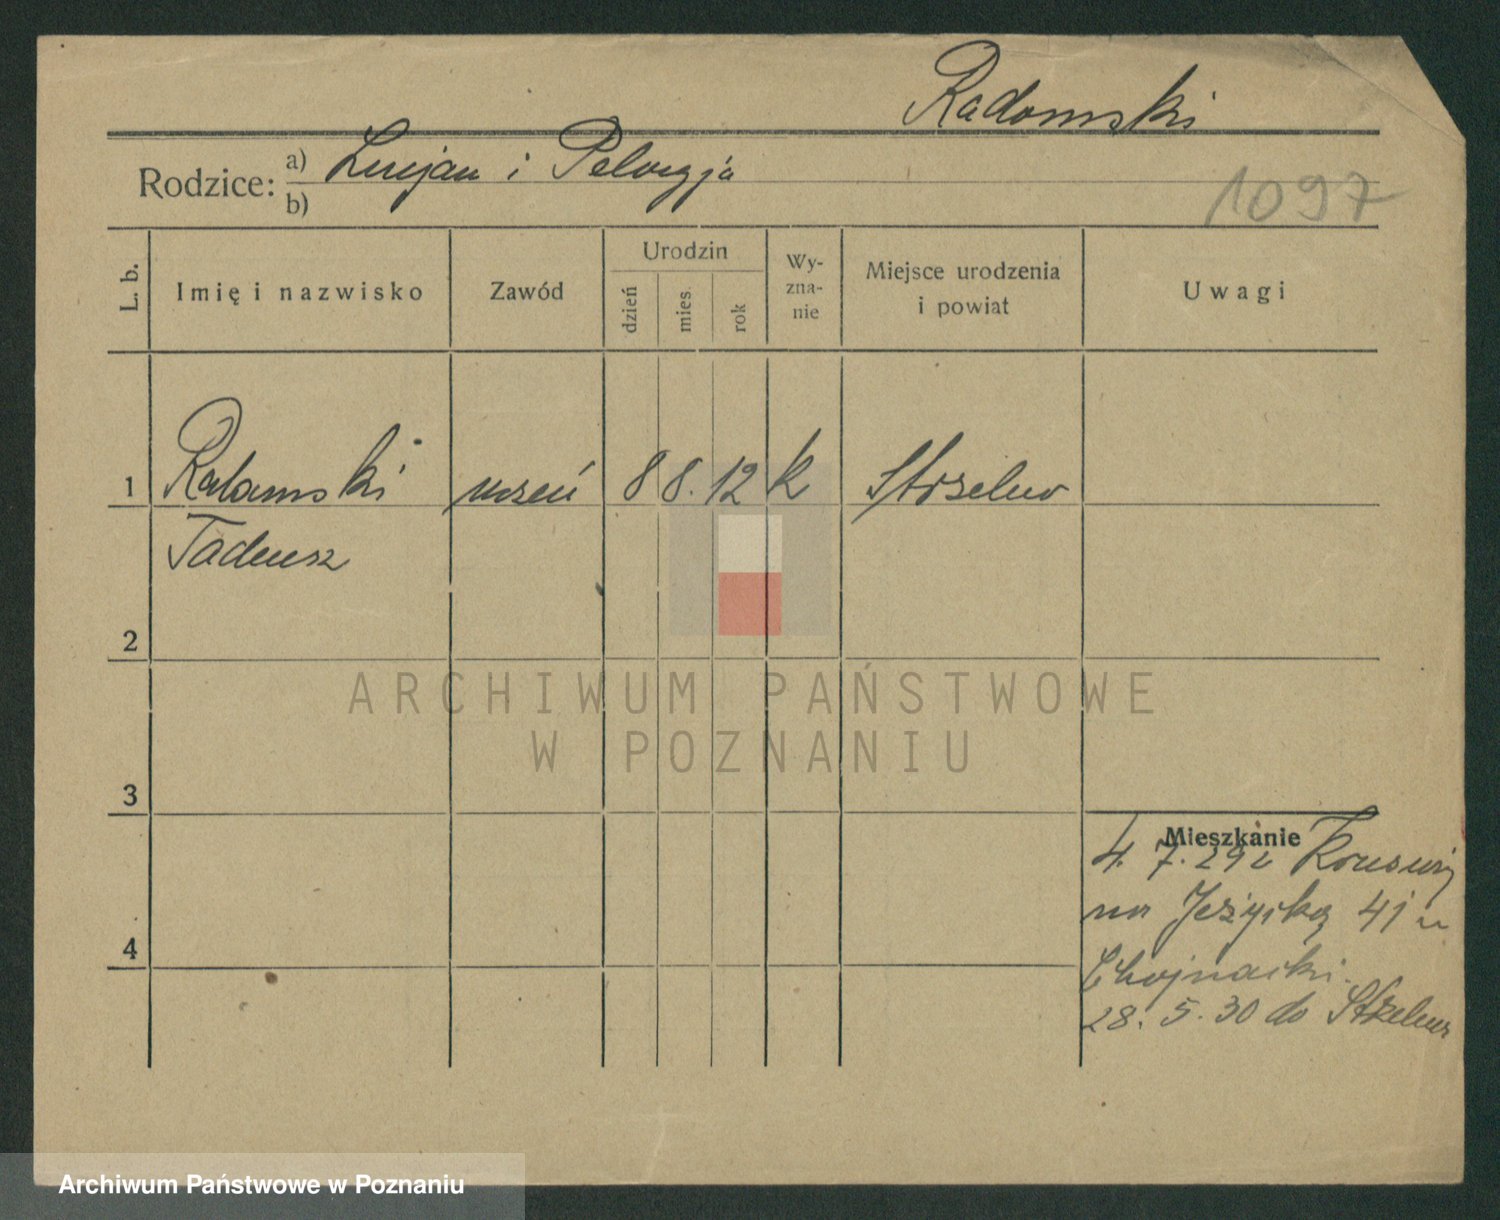 Radomski
Rodzice: a) Lucjan i Pelagja
b)
1097
L. b.
Imię i nazwisko
Zawód
Urodzin
dzień
mies.
rok
Wy-
zna-
nie
Miejsce urodzenia
i powiat
Uwagi
1 Radomski uczeń 8 8. 12 k Strzelno
Tadeusz
2
3
4
Mieszkanie
4. 7. 29 z
na Jeżycką 41 u
Chojnacki.
28. 5. 30 do Strzelna
ARCHIWUM PAŃSTWOWE
W POZNANIU
Archiwum Państwowe w Poznaniu